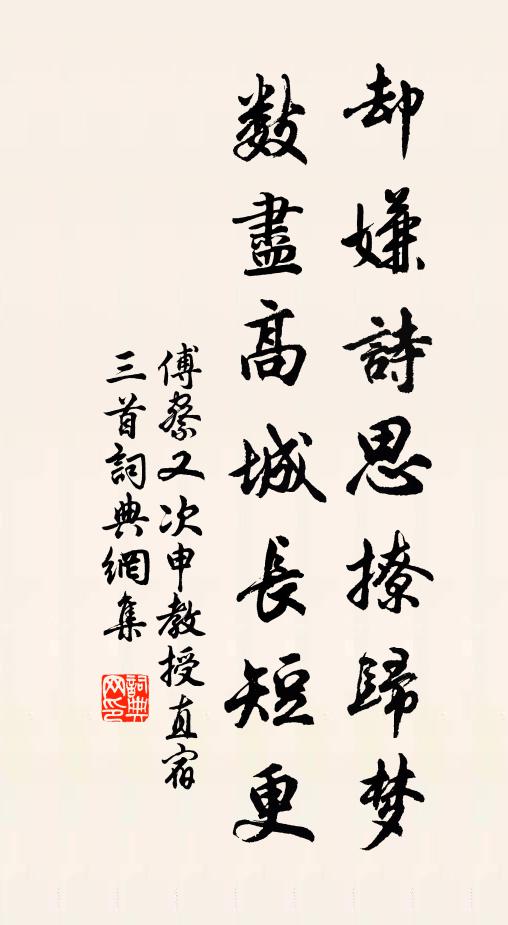 却嫌詩思撩歸梦
數盡高城長短更
傅察又次申教授直宿
三首詞典網集
詞典网印